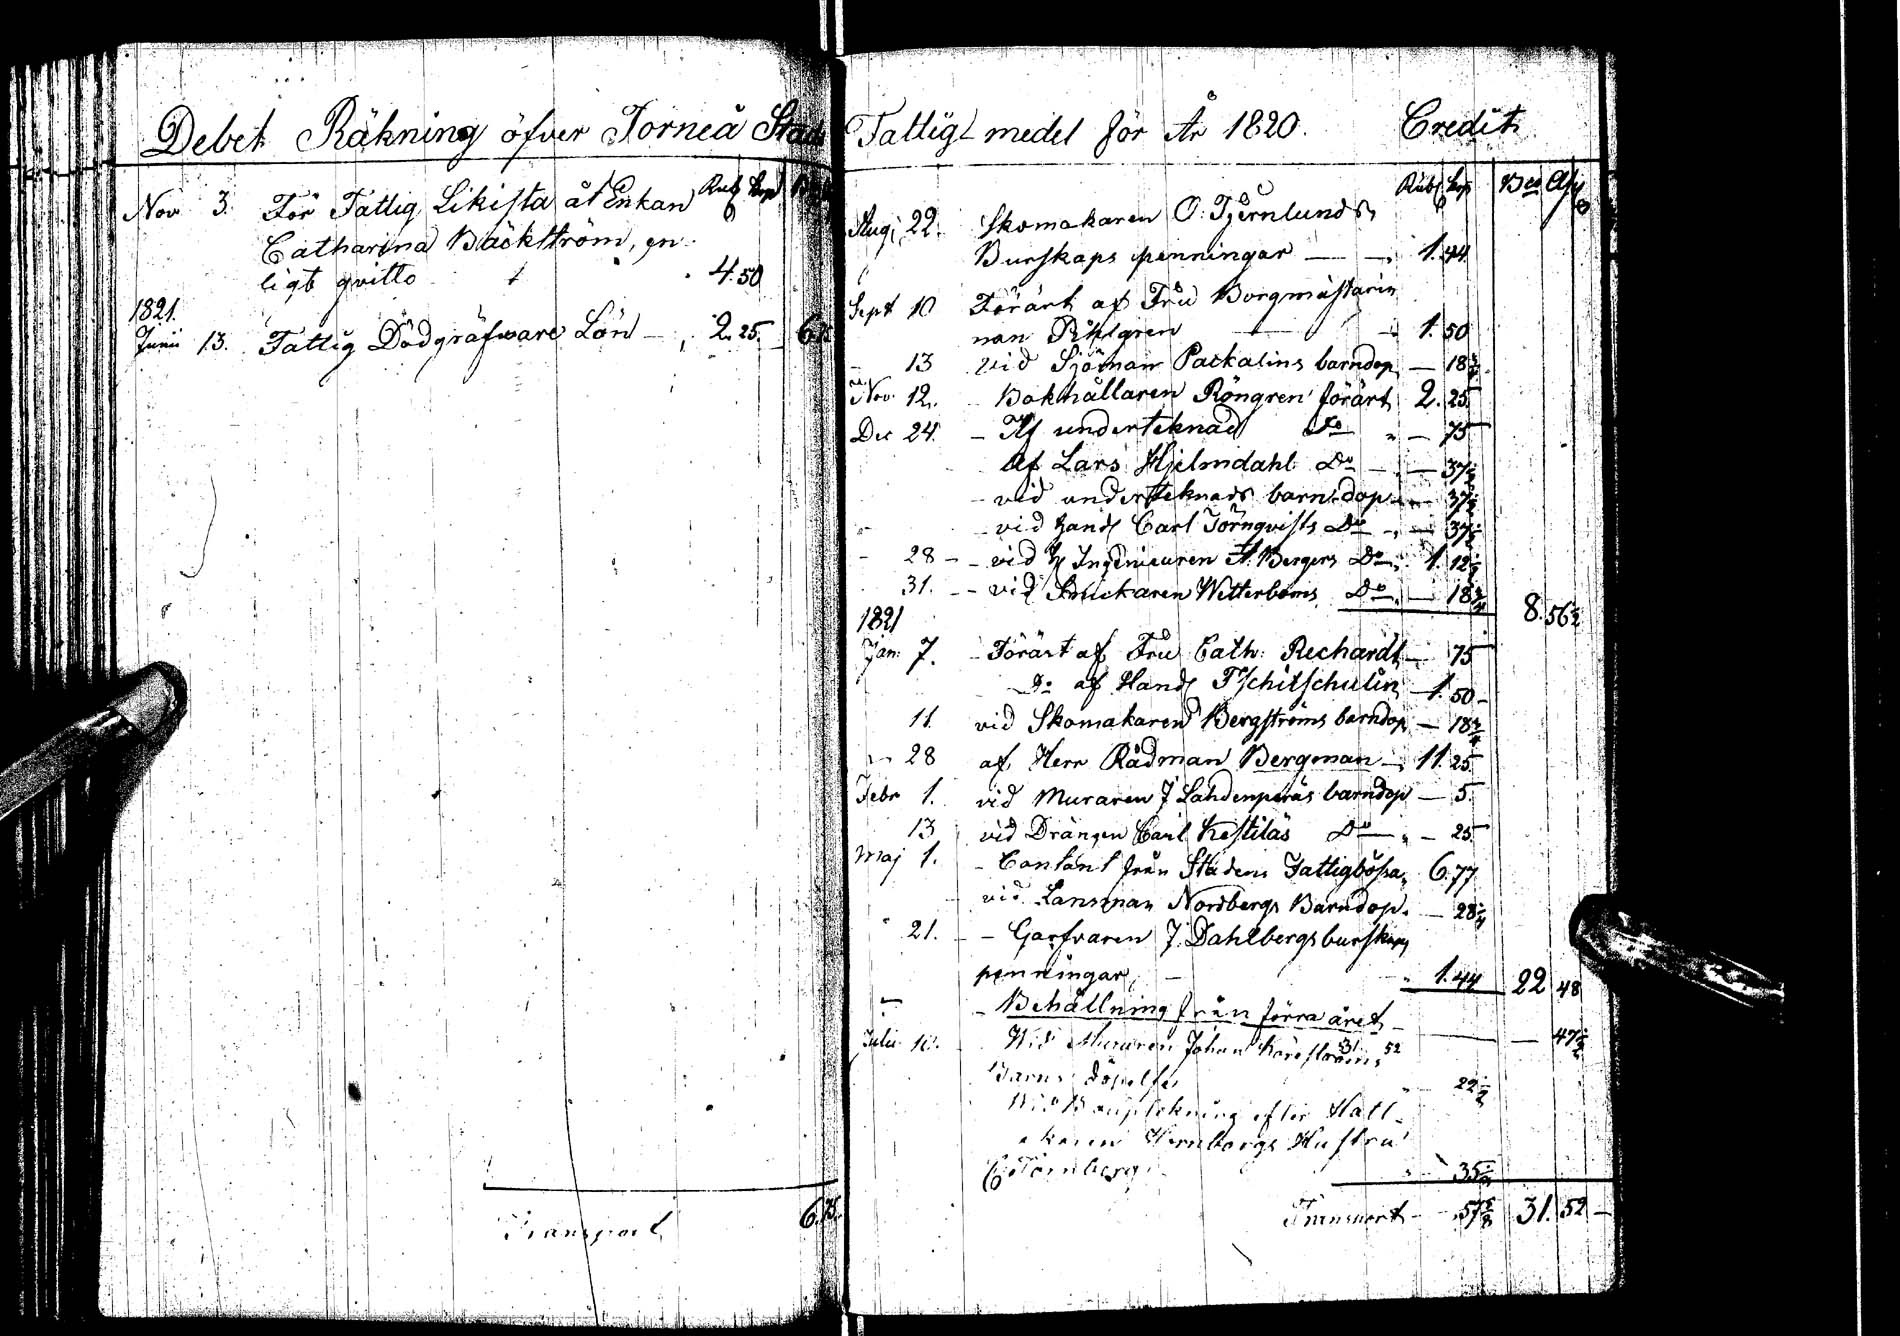 Debet Räkning öfver Torneå Stads
Rub Kop
Nov 3. För Fattig Likista åt Enkan
Catharina Bäckström, en-
ligt qvitto 4.50
1821.
Junii 13. Fattig Dödgräfvare Lön 2.25. 6.75
Transport 6.75.
Fattig-medel för År 1820. Credit
Rub Kop Bco
Aug 22. Skomakaren O. Tjernlunds
Burskaps penningar 1.44
Sept 10 Förärt af Fru Borgmästarin
nan Pihlgren 1.50
13 vid Sjöman Packalins barndop 18 3/4
Nov. 12. Bokhållaren Röngren förärt 2.25
Dec 24. Af underteknad Do 75
Af Lars Hjelmdahl Do 37 1/2
vid undertteknads barndop 37 1/2
vid Hand Carl Törnqvists Do 37 1/2
28 vid H Ingenieuren A. Bergers Do 1.12 1/2
31. vid Snickaren Wetterboms Do 18 3/4
8.56 1/2
1821
Jan: 7. Förärt af Fru Cath: Rechardt 75
Do af Hand Tschitschulin 1.50
11. vid Skomakaren Bergströms barndop 18 3/4
28 af Herr Rådman Bergman 11.25
Febr 1. vid Muraren J Lahdenperäs barndop 5.
13 vid Drängen Carl Kestiläs Do 25
Maj 1. Contant från Stadens Fattigbössa 6.77
vid Lansman Nordbergs Barndop. 28 1/4
21. Garfvaren J. Dahlbergs burskaps
penningar 1.44 22 48
Behållning från förra året 47 1/2
31 52
Julii 10. Wid Muraren Johan
Barns döpelse 22 1/2
efter Hatt-
Hustru
35
Transport 57 31.52